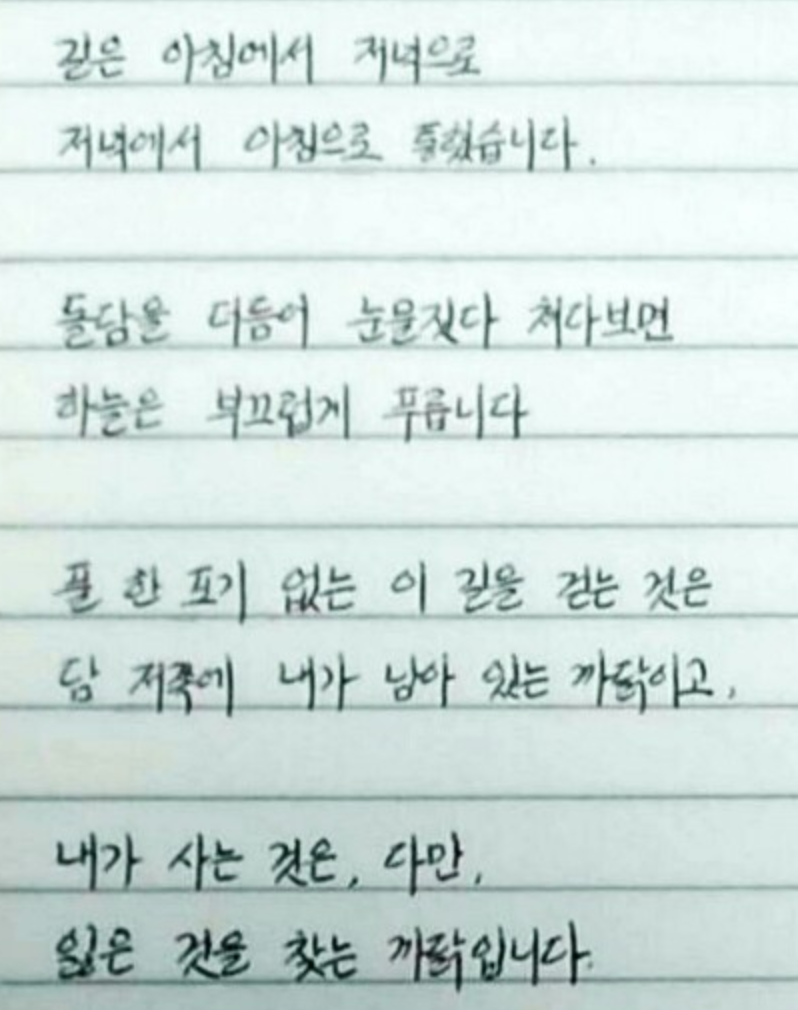 길은 아침에서 저녁으로
저녁에서 아침으로 통했습니다.
돌담을 더듬어 눈물짓다 쳐다보면
하늘은 부끄럽게 푸릅니다
풀 한 포기 없는 이 길을 걷는 것은
담 저쪽에 내가 남아 있는 까닭이고,
내가 사는 것은, 다만,
잃은 것을 찾는 까닭입니다.